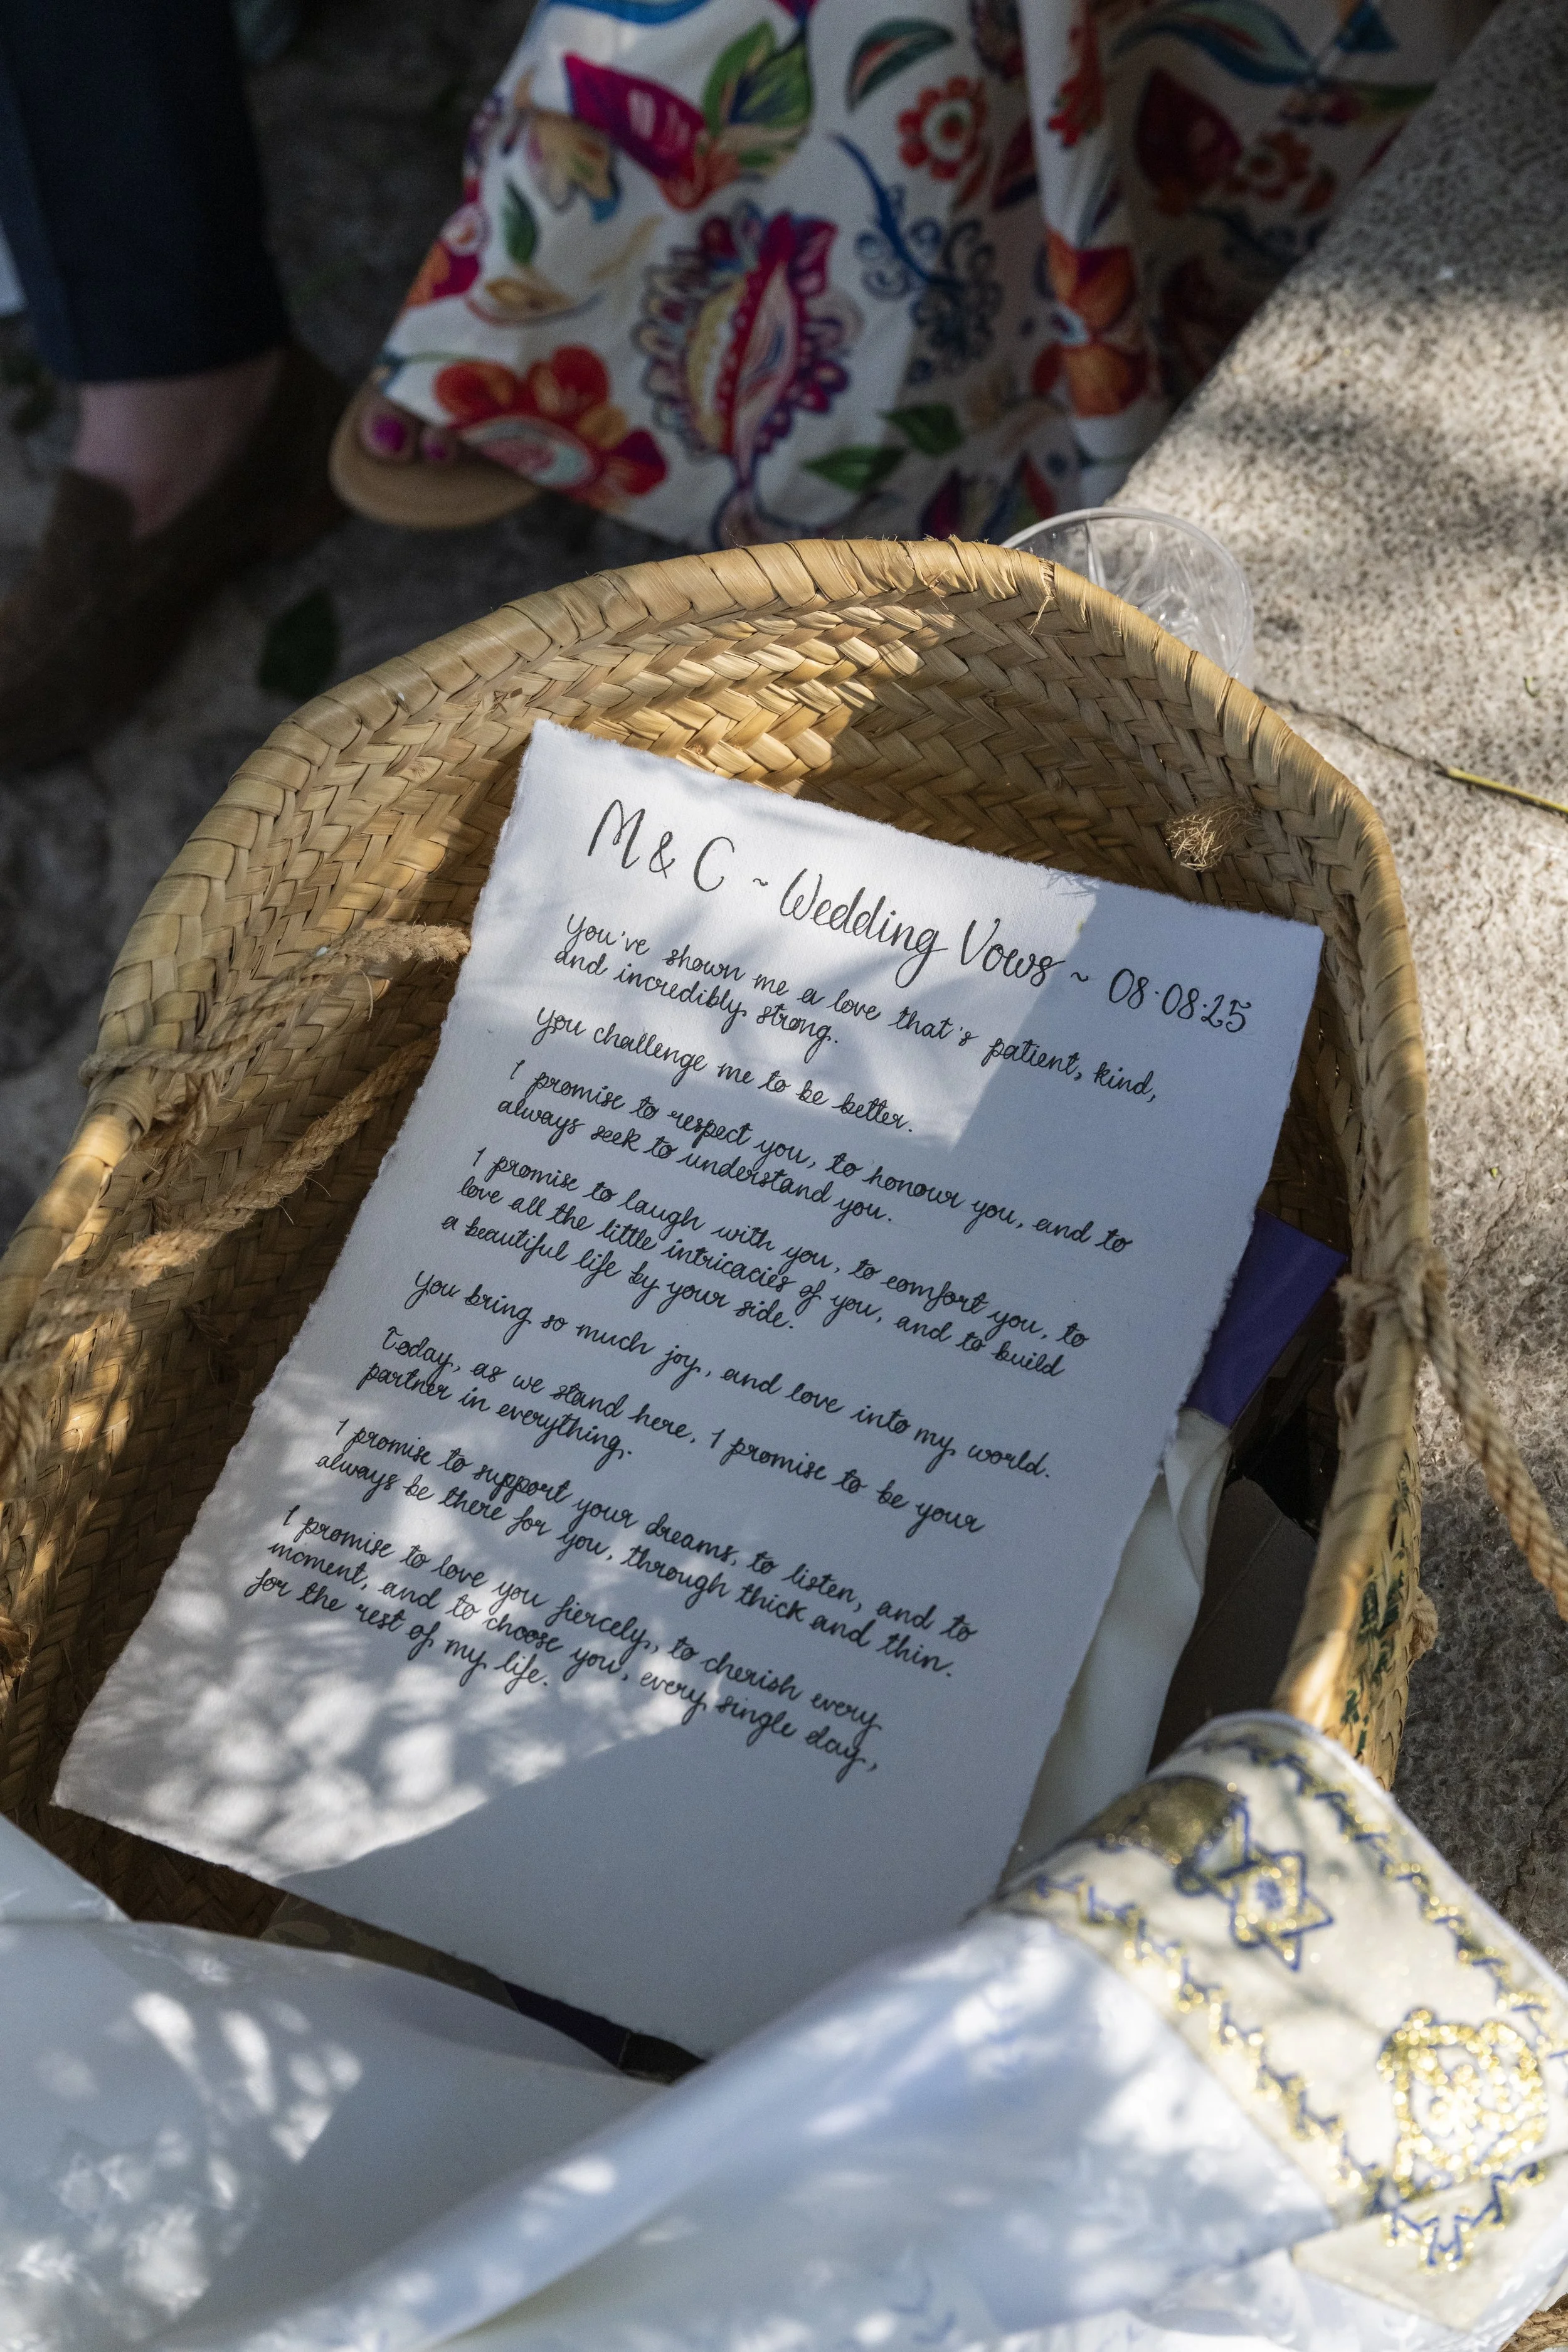 M & C ~ Wedding Vows ~ 08·08·25
You've shown me a love that's patient, kind,
and incredibly strong.
You challenge me to be better.
I promise to respect you, to honour you, and to
always seek to understand you.
I promise to laugh with you, to comfort you, to
love all the little intricacies of you, and to build
a beautiful life by your side.
You bring so much joy, and love into my world.
Today, as we stand here, I promise to be your
partner in everything.
I promise to support your dreams, to listen, and to
always be there for you, through thick and thin.
I promise to love you fiercely, to cherish every
moment, and to choose you, every single day,
for the rest of my life.